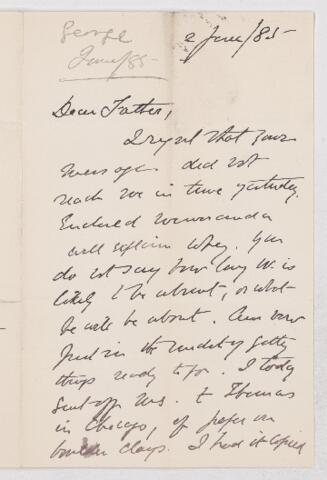 George
June/85
2 June/85
Dear Father,
I regret that your
message did not
reach me in time yesterday.
Enclosed memoranda
will explain why. You
do not say how long W. is
likely to be absent, or what
he will be about. Am now
just in the midst of getting
things ready to go. I today
sent off ms. to Thomas
in Chicago, of paper on
boulder clays. I had it copied